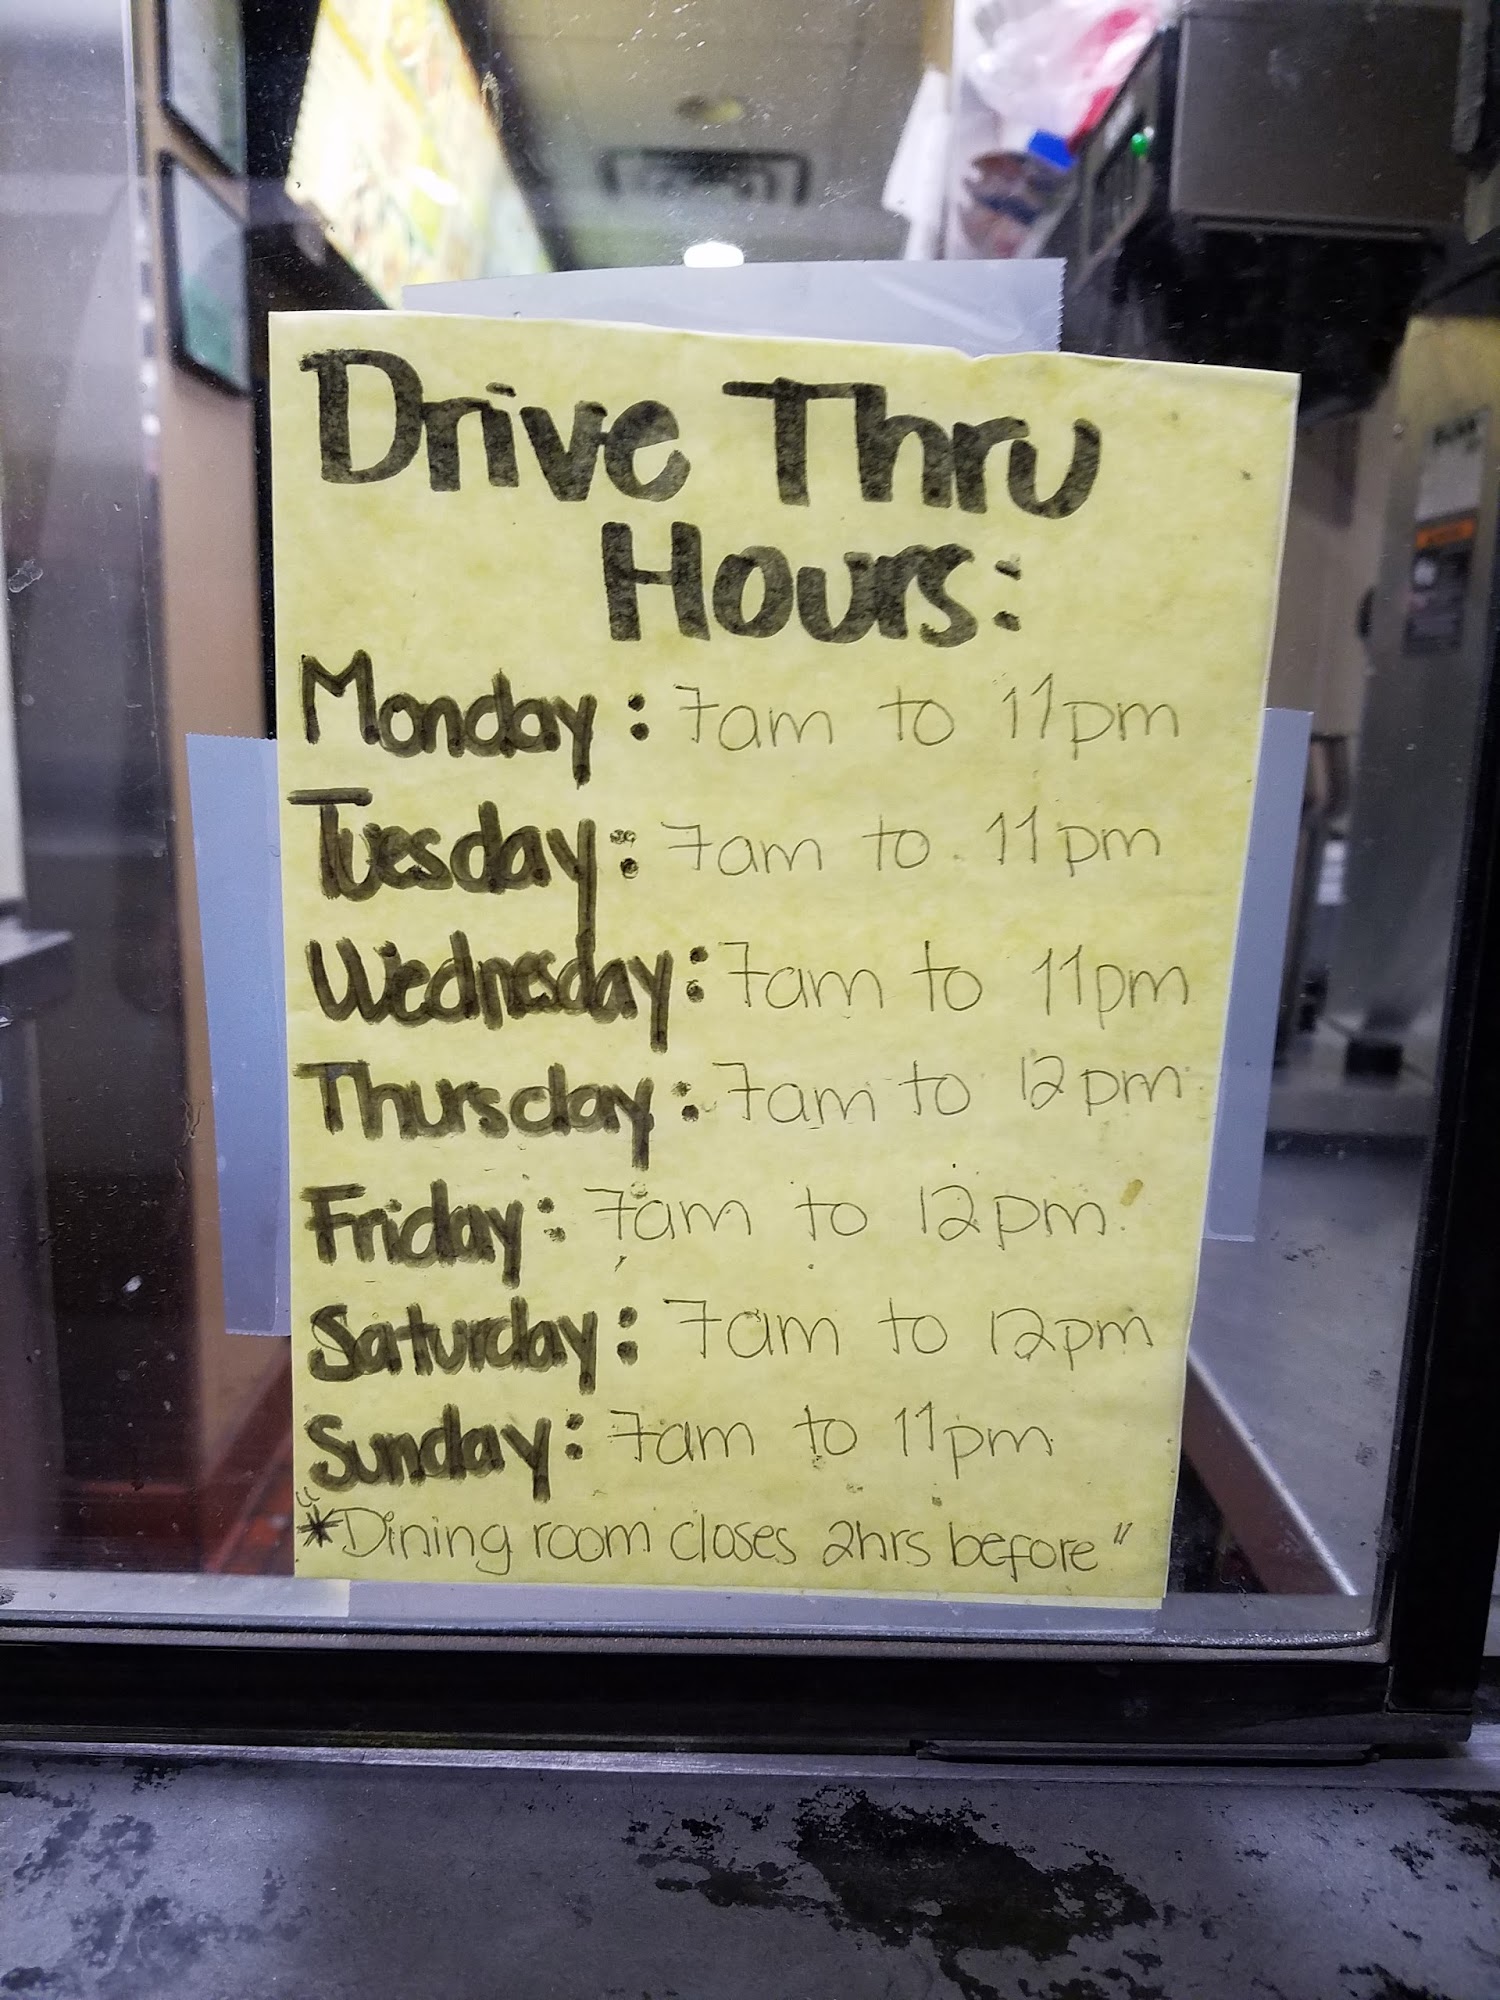 Drive Thru
Hours:
Monday: 7am to 11pm
Tuesday: 7am to 11pm
Wednesday: 7am to 11pm
Thursday: 7am to 12pm
Friday: 7am to 12pm
Saturday: 7am to 12pm
Sunday: 7am to 11pm
"*Dining room closes 2hrs before"